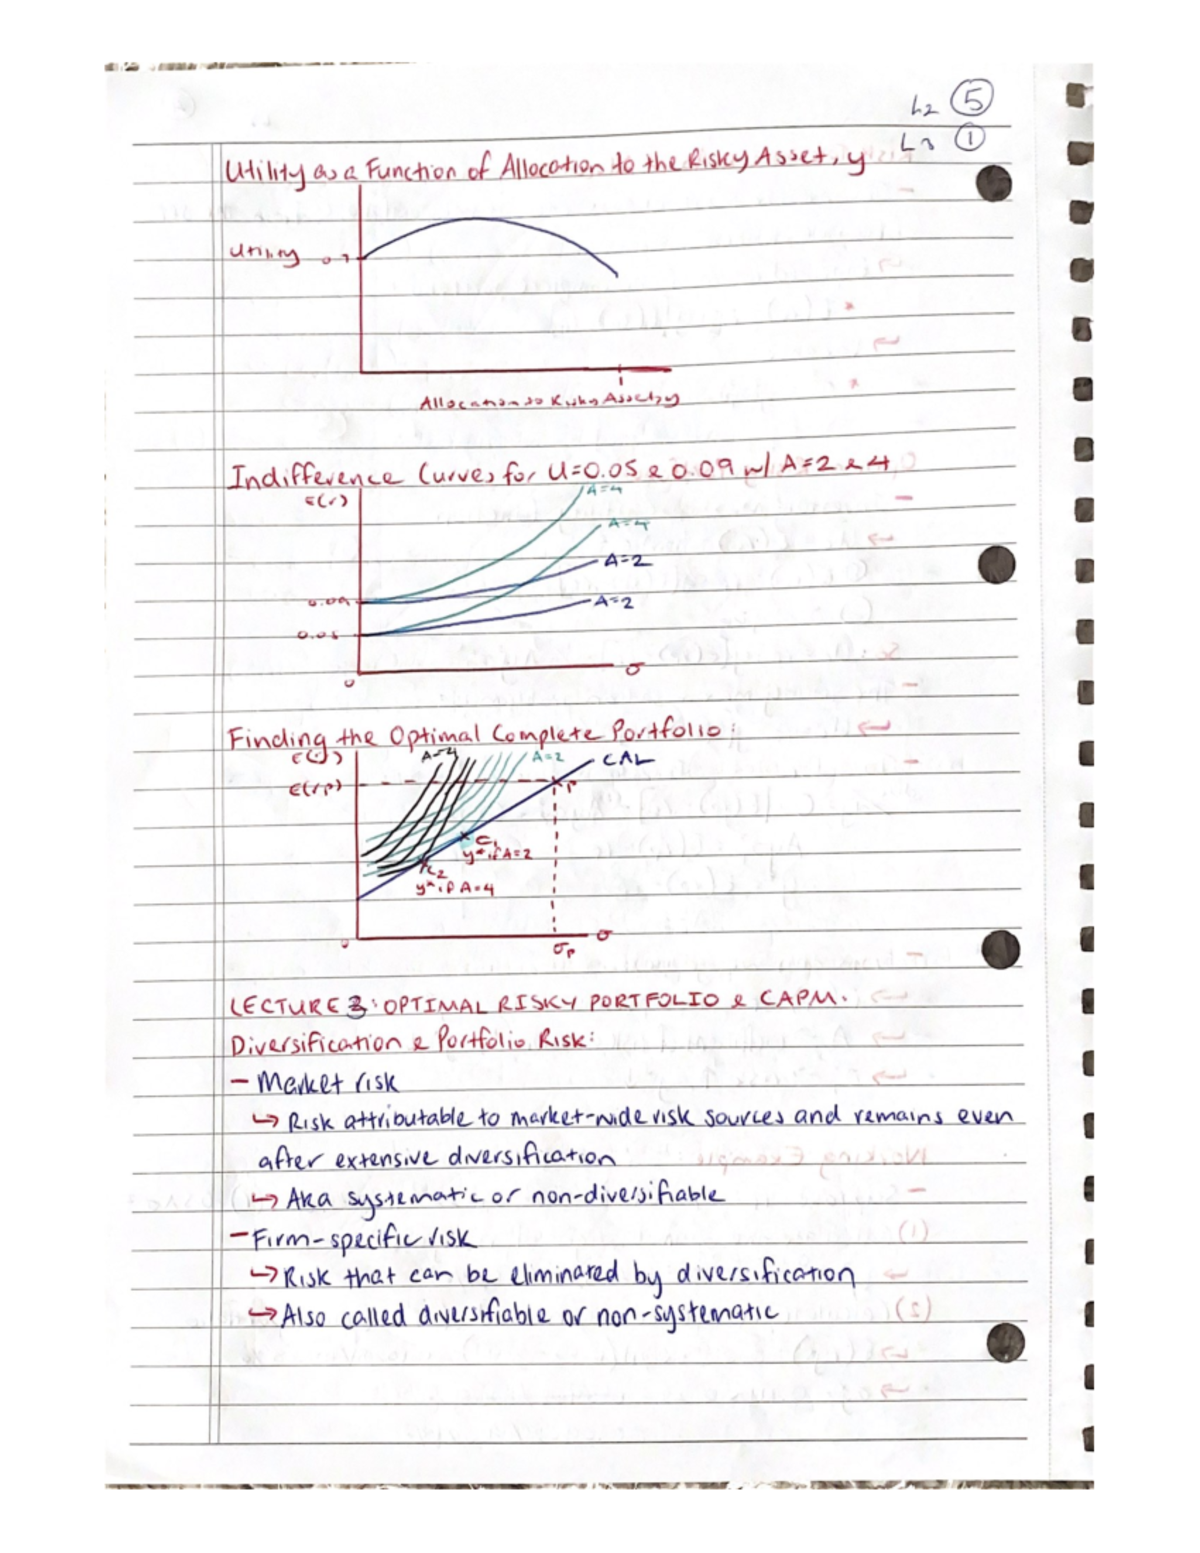 L2 ⑤
L3 ①
Utility as a Function of Allocation to the Risky Asset, y
Utility
Allocation to Risky Asset, y
Indifference Curves for U=0.05 & 0.09 w/ A=2 & 4
E(r)
A=4
A=4
A=2
0.09
A=2
0.05
σ
0
Finding the Optimal Complete Portfolio:
E(r) A=4 A=2 CAL
E(rp) P
C1
y* if A=2
C2
y* if A=4
0 σ
σp
LECTURE 3: OPTIMAL RISKY PORTFOLIO & CAPM.
Diversification & Portfolio Risk:
- Market risk
↳ Risk attributable to market-wide risk sources and remains even
after extensive diversification
↳ Aka systematic or non-diversifiable
- Firm-specific risk
↳ Risk that can be eliminated by diversification
↳ Also called diversifiable or non-systematic